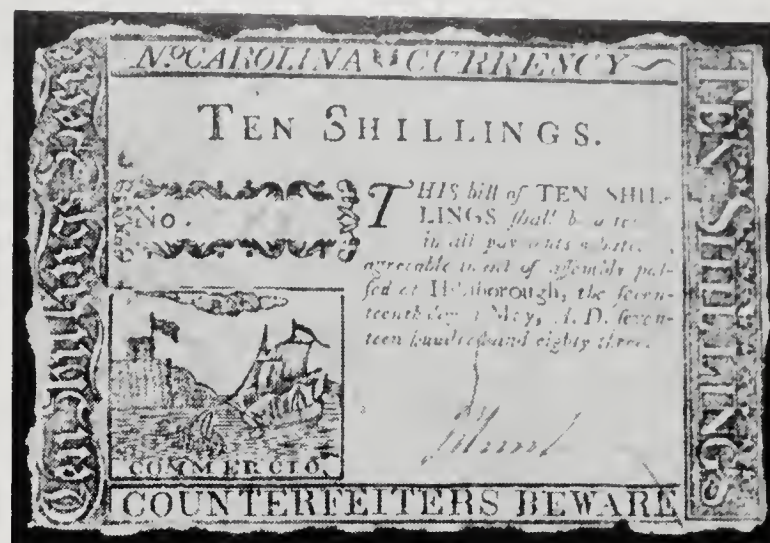 No. CAROLINA CURRENCY
TEN SHILLINGS.
No.
THIS bill of TEN SHIL-
LINGS shall be a
in all
agreeable to act of assembly pas-
sed at Hillsborough, the seven-
teenth day of May, A. D. seven-
teen hundred and eighty three.
COMMERCIO,
COUNTERFEITERS BEWARE
Ten Shillings
TEN SHILLINGS